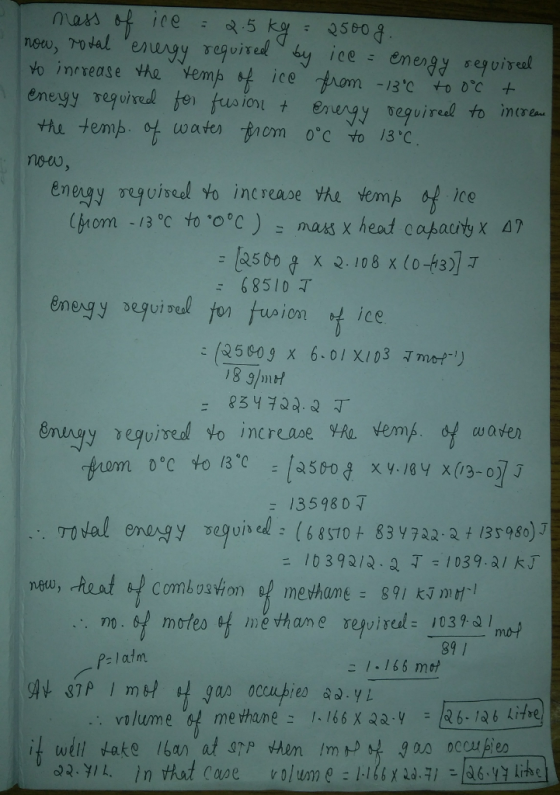 Mass of ice = 2.5 kg = 2500 g.
now, total energy required by ice = energy required
to increase the temp of ice from -13°C to 0°C +
energy required for fusion + energy required to increase
the temp. of water from 0°C to 13°C.
now,
Energy required to increase the temp of ice
(from -13°C to 0°C) = mass x heat capacity x ΔT
= [2500 g x 2.108 x (0-(-13)] J
= 68510 J
Energy required for fusion of ice
= (2500g x 6.01 x 103 J mol-1)
18 g/mol
= 834722.2 J
Energy required to increase the temp. of water
from 0°C to 13°C = [2500 g x 4.184 x (13-0)] J
= 135980 J
∴ Total energy required = (68510 + 834722.2 + 135980) J
= 1039212.2 J = 1039.21 KJ
now, heat of combustion of methane = 891 KJ mol-1
∴ no. of moles of methane required = 1039.21 mol
891
P=1atm
= 1.166 mol
At STP 1 mol of gas occupies 22.4 L
∴ volume of methane = 1.166 x 22.4 = 26.126 Litre
if we'll take 1bar at STP then 1mol of gas occupies
22.71L. in that case volume = 1.166 x 22.71 = 26.47 Litre